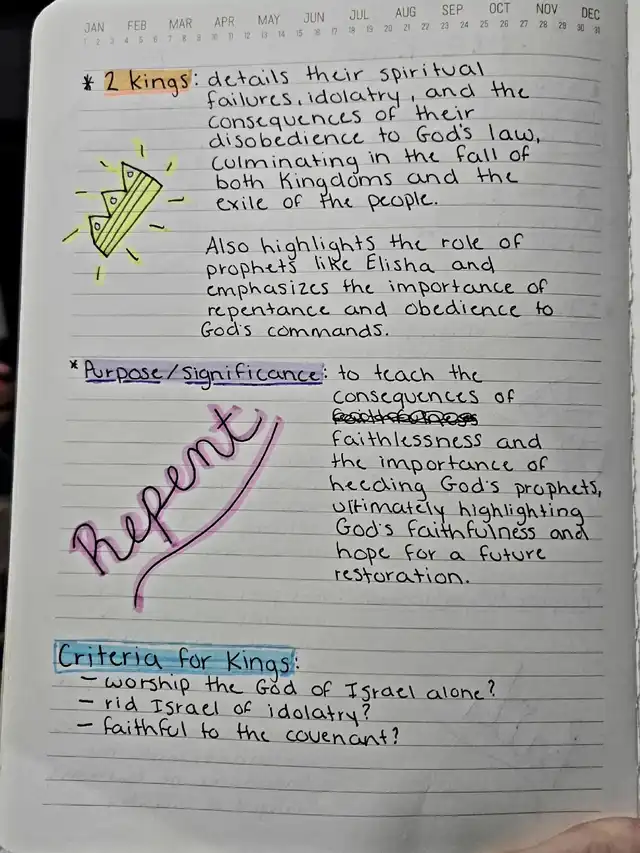 JAN FEB MAR APR MAY JUN JUL AUG SEP OCT NOV DEC
1 2 3 4 5 6 7 8 9 10 11 12 13 14 15 16 17 18 19 20 21 22 23 24 25 26 27 28 29 30 31
* 2 Kings: details their spiritual
failures, idolatry, and the
consequences of their
disobedience to God's law,
culminating in the fall of
both Kingdoms and the
exile of the people.
Also highlights the role of
prophets like Elisha and
emphasizes the importance of
repentance and obedience to
God's commands.
* Purpose/Significance: to teach the
consequences of
faithlessness and
the importance of
heeding God's prophets,
ultimately highlighting
God's faithfulness and
hope for a future
restoration.
Repent
Criteria for Kings:
- worship the God of Israel alone?
- rid Israel of idolatry?
- faithful to the covenant?